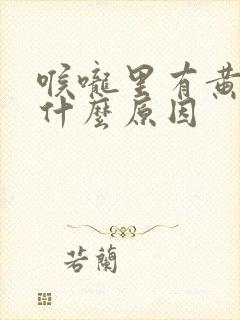 喉嚨里有黃
什麼原因
若蘭